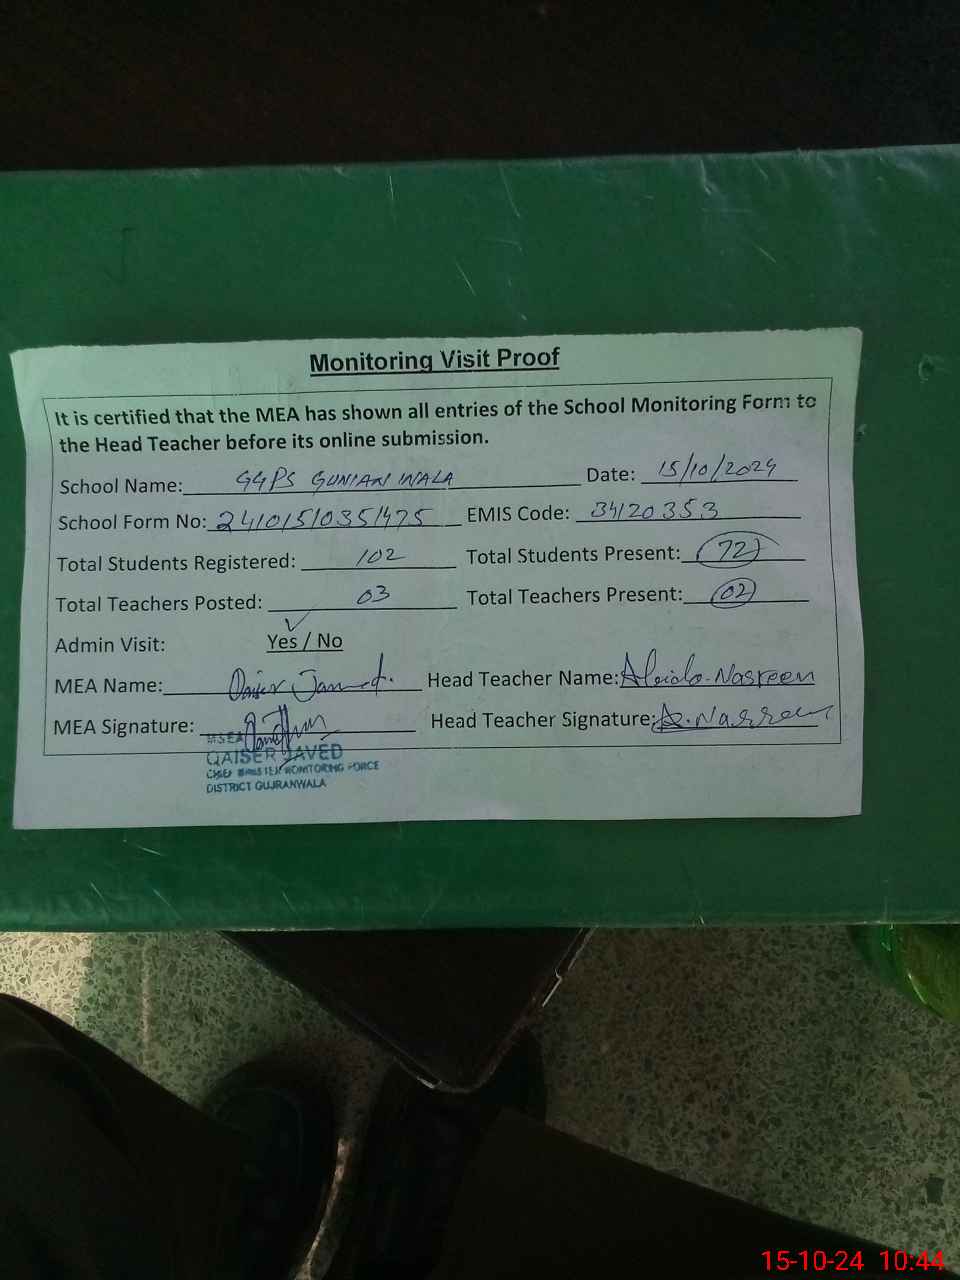 Monitoring Visit Proof
It is certified that the MEA has shown all entries of the School Monitoring Form to
the Head Teacher before its online submission.
School Name: GGPS GUNIAN WALA Date: 15/10/2024
School Form No: 24101510351475 EMIS Code: 34120353
Total Students Registered: 102 Total Students Present: 72
Total Teachers Posted: 03 Total Teachers Present: 02
Admin Visit: Yes / No
MEA Name: Qaiser Javed. Head Teacher Name: Nasreen
MEA Signature: Head Teacher Signature: A. Nasreen
MSEA
QAISER JAVED
CHIEF MINISTER MONITORING FORCE
DISTRICT GUJRANWALA
15-10-24 10:44